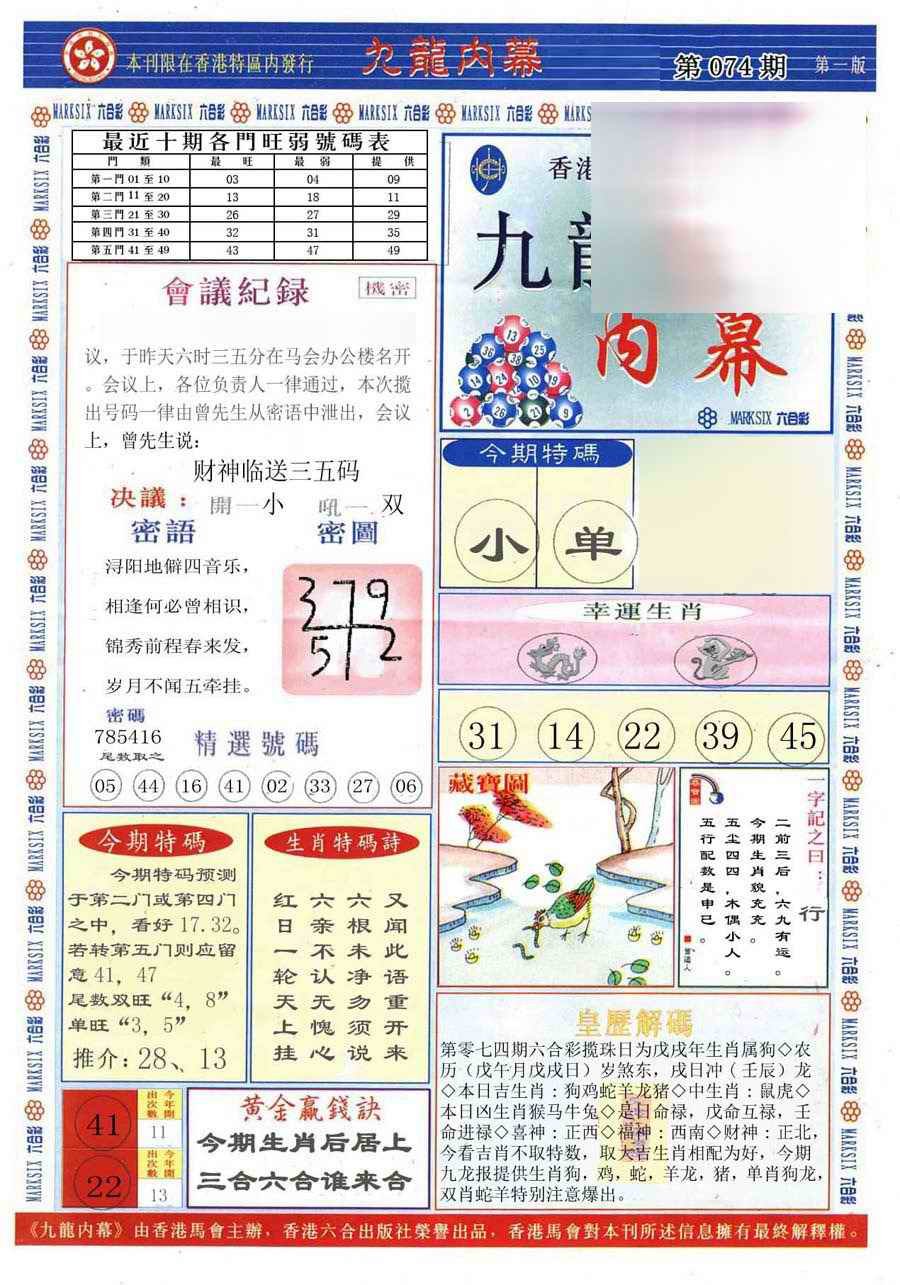 本刊限在香港特區内發行
九龍内幕
第074期
第一版
MARKSIX 六合彩
最近十期各門旺弱號碼表
門 類 最 旺 最 弱 提 供
第一門 01 至 10 03 04 09
第二門 11 至 20 13 18 11
第三門 21 至 30 26 27 29
第四門 31 至 40 32 31 35
第五門 41 至 49 43 47 49
香港
九
内幕
13
36 25
38
24 10 19
2 26 27 9
MARKSIX 六合彩
會議紀録
機密
议，于昨天六时三五分在马会办公楼名开
。会议上，各位负责人一律通过，本次揽
出号码一律由曾先生从密语中泄出，会议
上，曾先生说：
财神临送三五码
决議：開一小 吼一 双
密語 密圖
浔阳地僻四音乐，
相逢何必曾相识，
锦秀前程春来发，
岁月不闻五牵挂。
3 7 9
5 2
密碼
785416
尾数取之
精選號碼
05 44 16 41 02 33 27 06
今期特碼
小 单
幸運生肖
31 14 22 39 45
藏寶圖
一字記之曰：行
二前三后，六九有运。
今期生肖貌充充。
五尘四四，木偶小人。
五行配数是申巳。
今期特碼
今期特码预测
于第二门或第四门
之中，看好 17.32。
若转第五门则应留
意 41，47
尾数双旺“4，8”
单旺“3，5”
推介：28、13
生肖特碼詩
又闻此语重开来
六根未净勿须说
六亲不认无愧心
红日一轮天上挂
皇歷解碼
第零七四期六合彩揽珠日为戊戌年生肖属狗◇农
历（戊午月戊戌日）岁煞东，戌日冲（壬辰）龙
◇本日吉生肖：狗鸡蛇羊龙猪◇中生肖：鼠虎◇
本日凶生肖猴马牛兔◇是日命禄，戊命互禄，壬
命进禄◇喜神：正西◇福神：西南◇财神：正北，
今看吉肖不取特数，取大吉生肖相配为好，今期
九龙报提供生肖狗，鸡，蛇，羊龙，猪，单肖狗龙，
双肖蛇羊特别注意爆出。
41
今年開出次數
11
22
今年開出次數
13
黄金贏錢訣
今期生肖后居上
三合六合谁来合
《九龍内幕》由香港馬會主辦，香港六合出版社榮譽出品，香港馬會對本刊所述信息擁有最終解釋權。